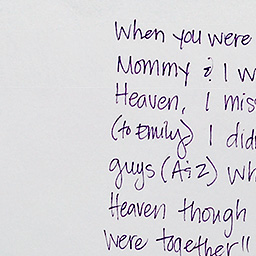 When you were
Mommy & I w
Heaven, I mis
(to Emily) I did
guys (A&Z) wh
Heaven though
were together!!